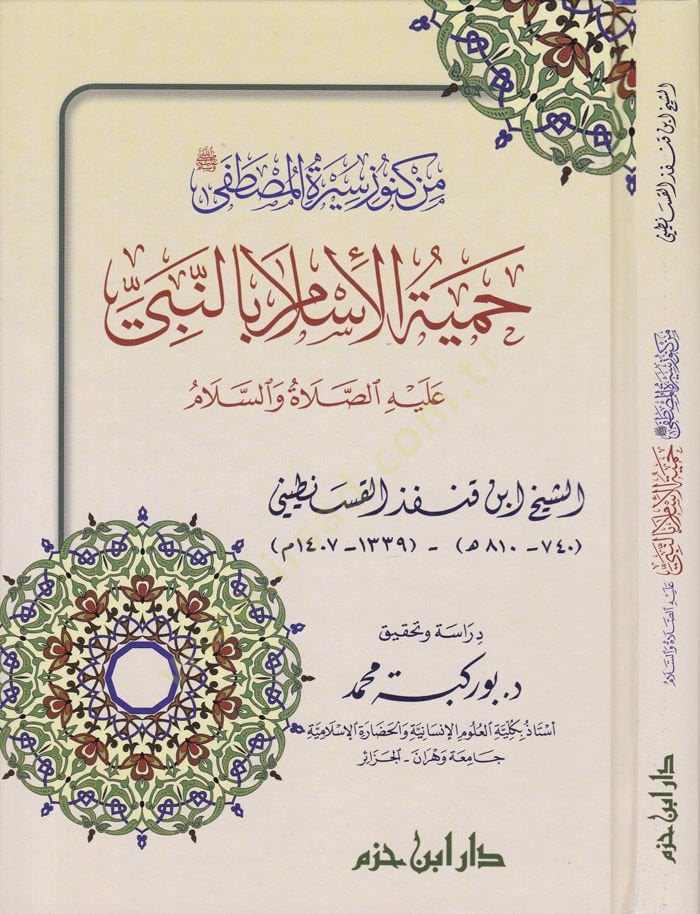 من كنوز سيرة المصطفى ﷺ
حميةُ الأسلام بالنَّبيِّ
عَلَيْهِ الصَّلَاةُ وَالسَّلَامُ
الشيخ ابن قنفذ القسانطيني
(٧٤٠ - ٨١٠ هـ) - (١٣٣٩ - ١٤٠٧ م)
دراسة وتحقيق
د. بوركبة محمد
أستاذ بكلية العلوم الإنسانية والحضارة الإسلامية
جامعة وهران - الجزائر
دار ابن حزم
الشيخ ابن قنفذ القسانطيني
من كنوز سيرة المصطفى ﷺ
حمية الأسلام بالنبي
عليه الصلاة والسلام
دار ابن حزم